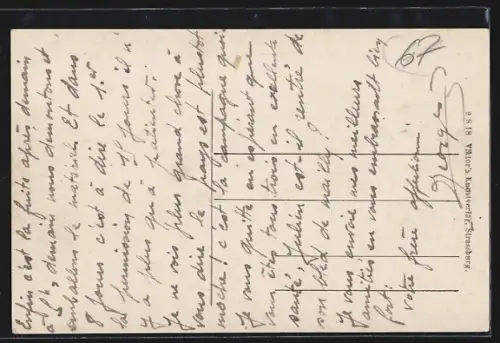 Enfin c'est la fuite après demain
à 9h, demain nous démontons et
emballons le matériel. Et dans
8 jours c'est à dire le 1er
la permission de 15 jours il n'
y a plus qu'à patienter.
Je ne vois plus grand chose à
vous dire le pays est plutôt
moche! c'est la campagne quoi
Je vous quitte en espérant que
vous êtes tous trois en excellente
santé, Julien est-il rentré de
son bled de Mailly?
Je vous envoie mes meilleurs
amitiés en vous embrassant bien
fort.
votre frère affectionné
Georges
67
2818 Viktor's Kunstverlag, Strassburg.